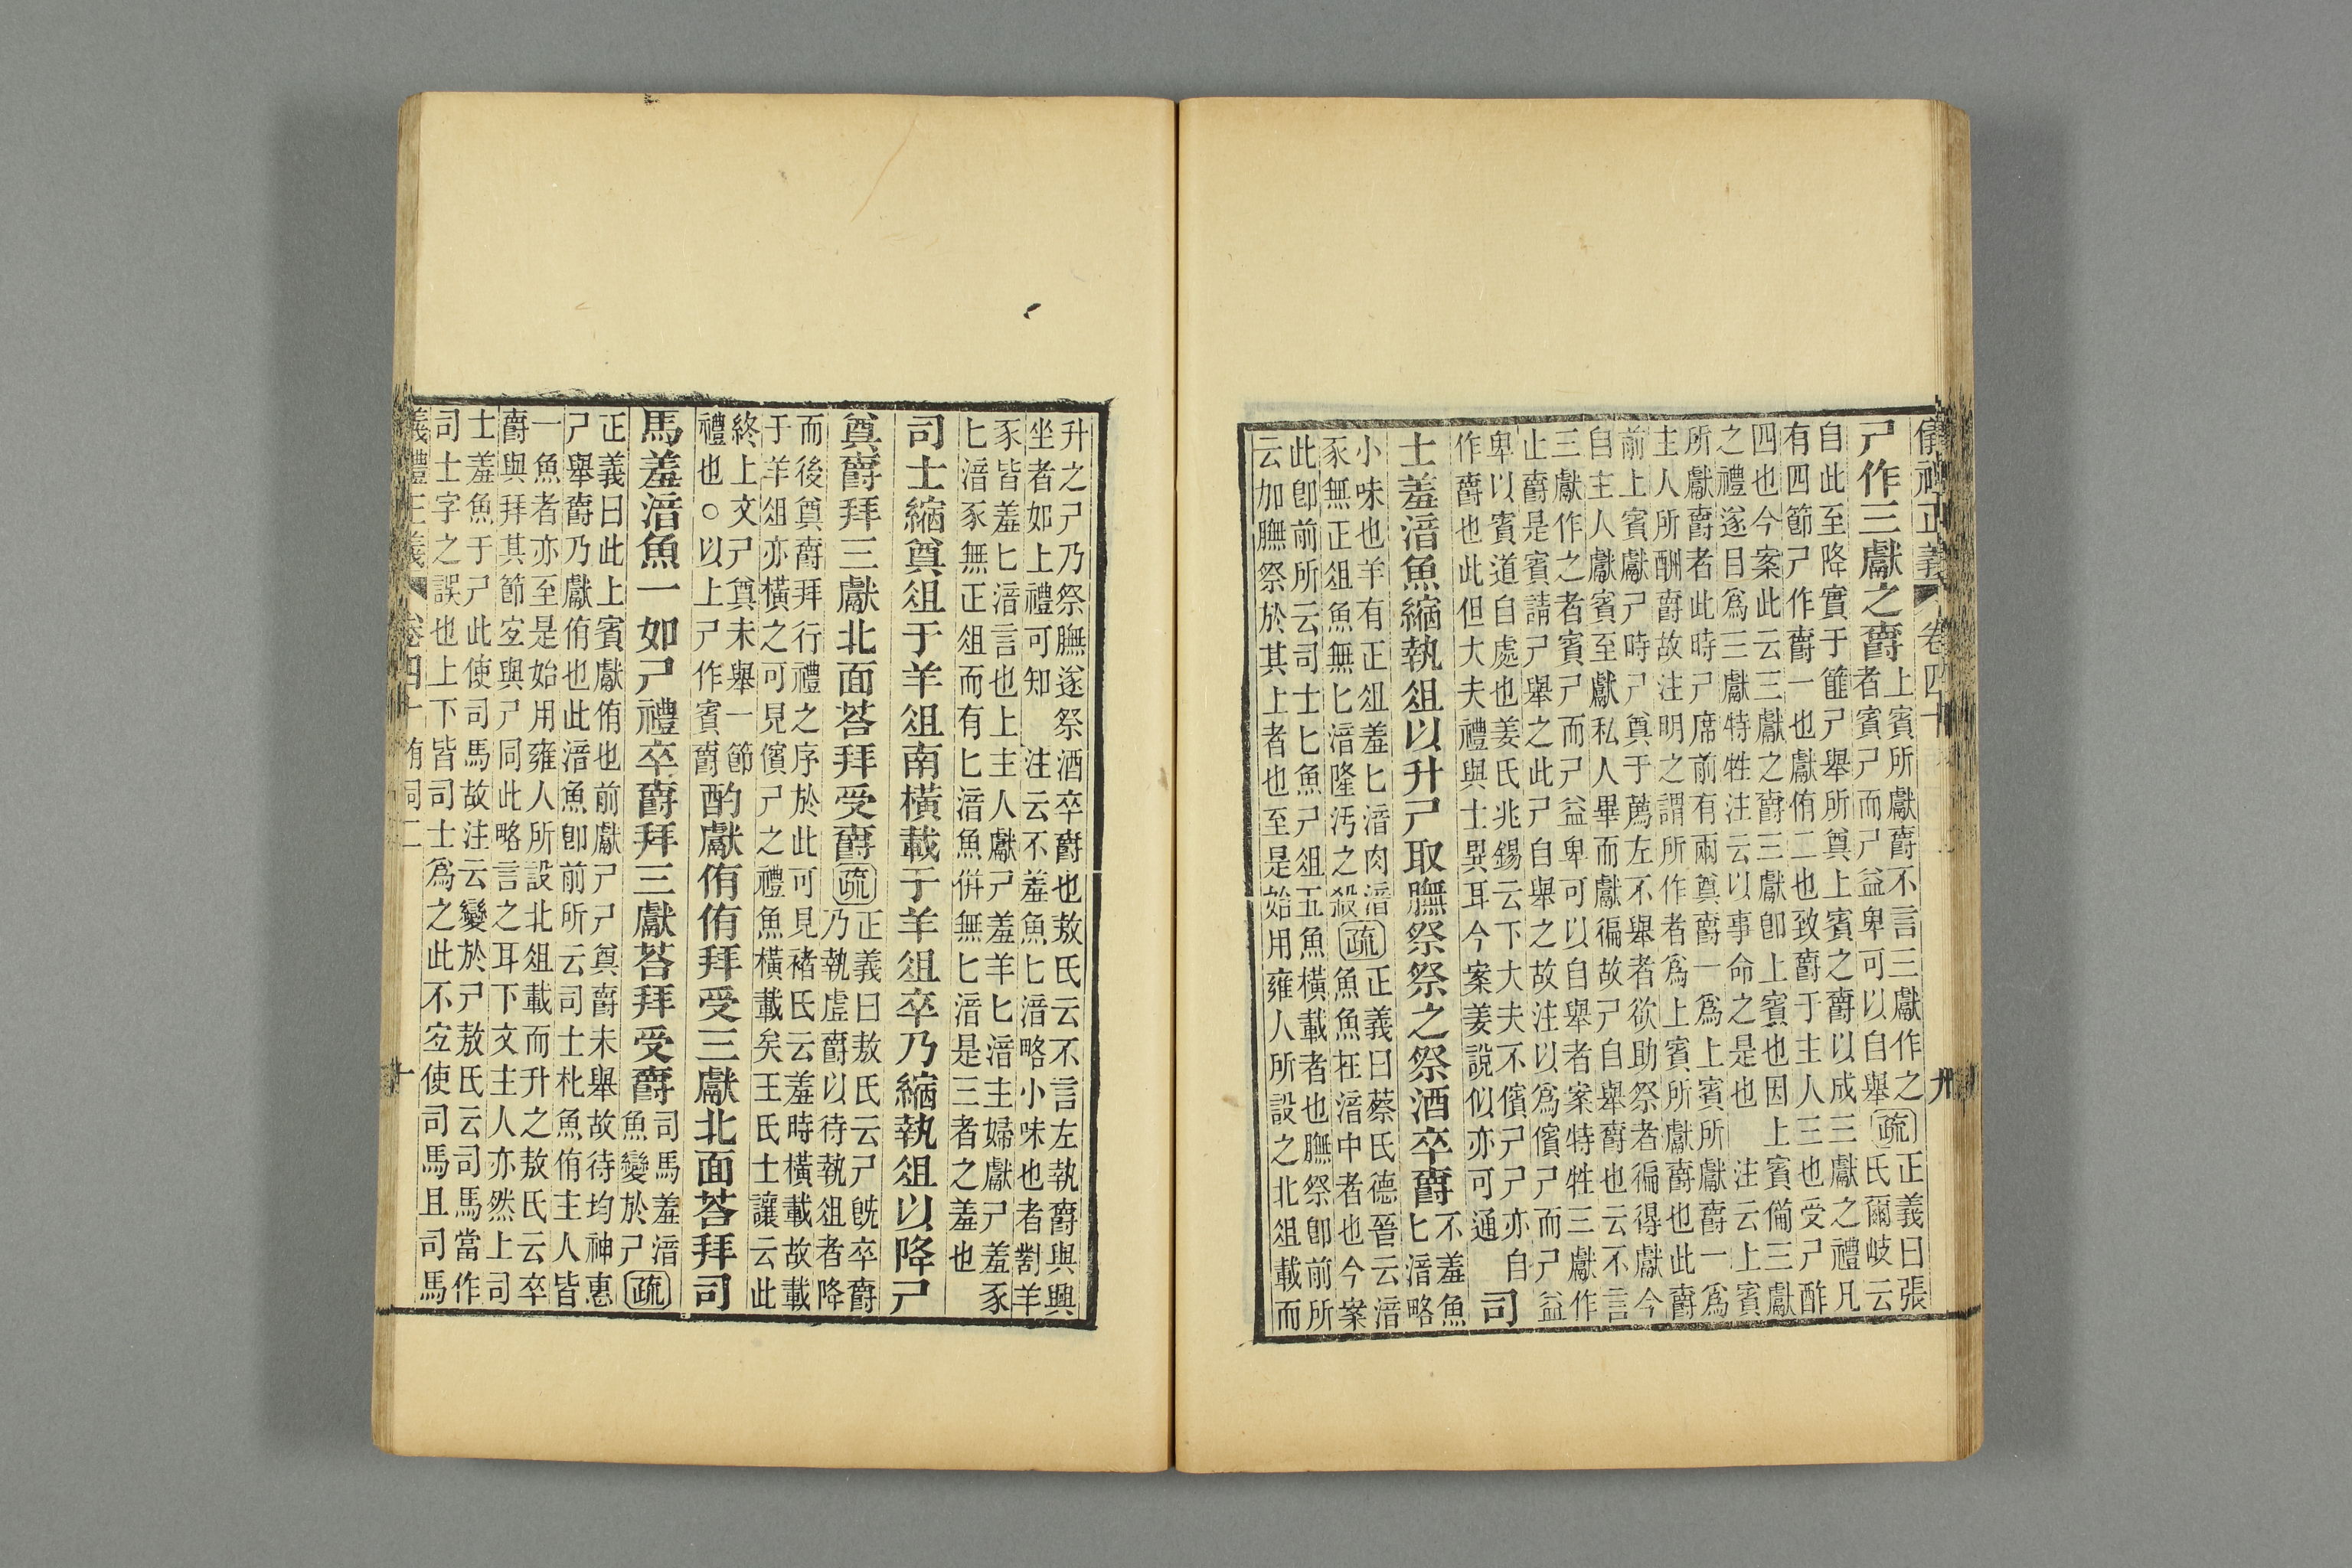 儀禮正義 卷四十 九
尸作三獻之爵上賓所獻爵不言三獻作之
者賓尸而尸益卑可以自舉疏正義曰張
氏爾岐云
自此至降實于篚尸舉所奠上賓之爵以成三獻之禮凡
有四節尸作爵一也獻侑二也致爵于主人三也受尸酢
四也今案此云三獻之爵三獻卽上賓也因上賓備三獻
之禮遂目爲三獻特牲注云以事命之是也 注云上賓
所獻爵者此時尸席前有兩奠爵一爲上賓所獻爵一爲
主人所酬爵故注明之謂所作者爲上賓所獻爵也此爵
前上賓獻尸時尸奠于薦左不舉者欲助祭者徧得獻今
自主人獻賓至獻私人畢而獻徧故尸自舉爵也云不言
三獻作之者賓尸而尸益卑可以自舉者案特牲三獻作
止爵是賓請尸舉之此尸自舉之故注以爲儐尸而尸益
卑以賓道自處也姜氏兆錫云下大夫不儐尸尸亦自
作爵也此但大夫禮與士異耳今案姜說似亦可通
司
士羞湆魚縮執俎以升尸取膴祭祭之祭酒卒爵不羞魚
匕湆略
小味也羊有正俎羞匕湆肉湆
豕無正俎魚無匕湆隆汚之殺疏正義曰蔡氏德晉云湆
魚魚在湆中者也今案
此卽前所云司士匕魚尸俎五魚橫載者也膴祭卽前所
云加膴祭於其上者也至是始用雍人所設之北俎載而
升之尸乃祭膴遂祭酒卒爵也敖氏云不言左執爵與興
坐者如上禮可知 注云不羞魚匕湆略小味也者對羊
豕皆羞匕湆言也上主人獻尸羞羊匕湆主婦獻尸羞豕
匕湆豕無正俎而有匕湆魚併無匕湆是三者之羞也
司士縮奠俎于羊俎南橫載于羊俎卒乃縮執俎以降尸
奠爵拜三獻北面荅拜受爵疏正義曰敖氏云尸旣卒爵
乃執虛爵以待執俎者降
而後奠爵拜行禮之序於此可見褚氏云羞時橫載故載
于羊俎亦橫之可見儐尸之禮魚橫載矣王氏士讓云此
終上文尸奠未舉一節
禮也○以上尸作賓爵酌獻侑侑拜受三獻北面荅拜司
馬羞湆魚一如尸禮卒爵拜三獻荅拜受爵司馬羞湆
魚變於尸疏
正義曰此上賓獻侑也前獻尸尸奠爵未舉故待均神惠
尸舉爵乃獻侑也此湆魚卽前所云司士朼魚侑主人皆
一魚者亦至是始用雍人所設北俎載而升之敖氏云卒
爵與拜其節宐與尸同此略言之耳下文主人亦然上司
士羞魚于尸此使司馬故注云變於尸敖氏云司馬當作
司士字之誤也上下皆司士爲之此不宐使司馬且司馬